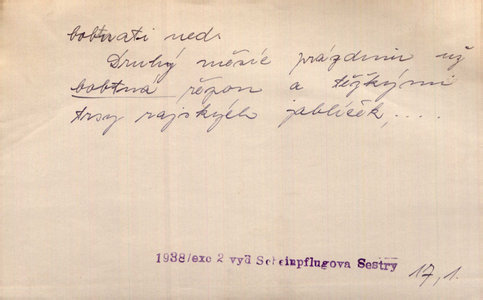 bobtnati ned.
Druhý měsíc prázdnin už
bobtná řepou a těžkými
trsy rajských jablíček,....
1938/exc 2 vyd Scheinpflugova Sestry
17,1.